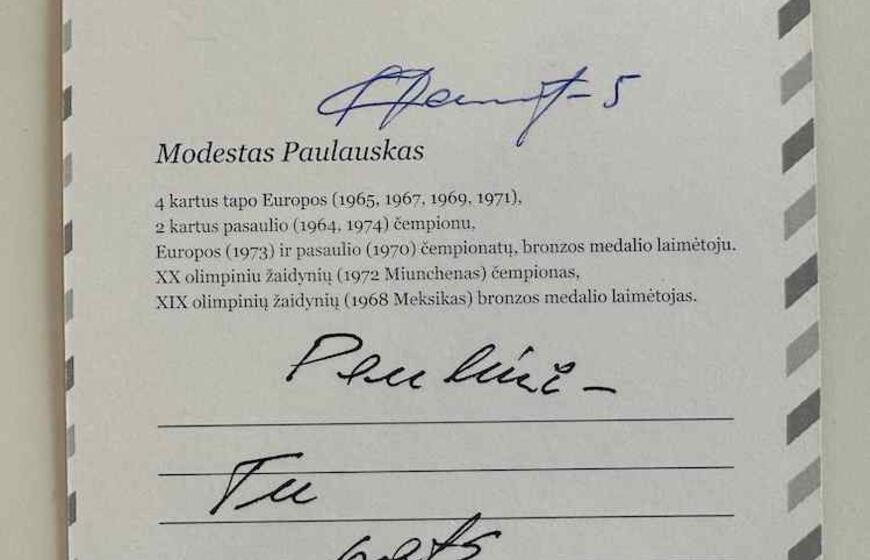 5
Modestas Paulauskas
4 kartus tapo Europos (1965, 1967, 1969, 1971),
2 kartus pasaulio (1964, 1974) čempionu,
Europos (1973) ir pasaulio (1970) čempionatų, bronzos medalio laimėtoju.
XX olimpiniu žaidynių (1972 Miunchenas) čempionas,
XIX olimpinių žaidynių (1968 Meksikas) bronzos medalio laimėtojas.
Tu
pats